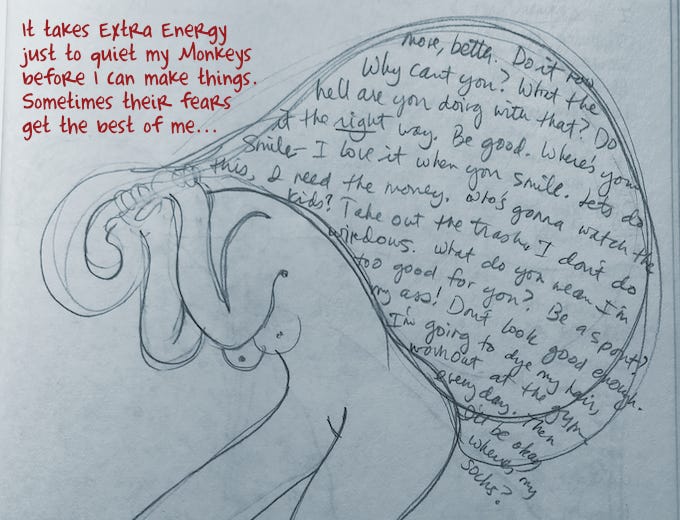 It takes Extra Energy
just to quiet my Monkeys
before I can make things.
Sometimes their fears
get the best of me...
more, betta. Do it now
Why cant you? What the
hell are you doing with that? Do
it the right way. Be good. Where's your
Smile - I love it when you smile. Lets do
this, I need the money. Who's gonna watch the
kids? Take out the trash. I don't do
windows. What do you mean I'm
too good for you? Be a spout?
my ass! Dont look good enough.
I'm going to dye my hair,
workout at the gym
everyday. Then
I'll be okay
where's my
socks?